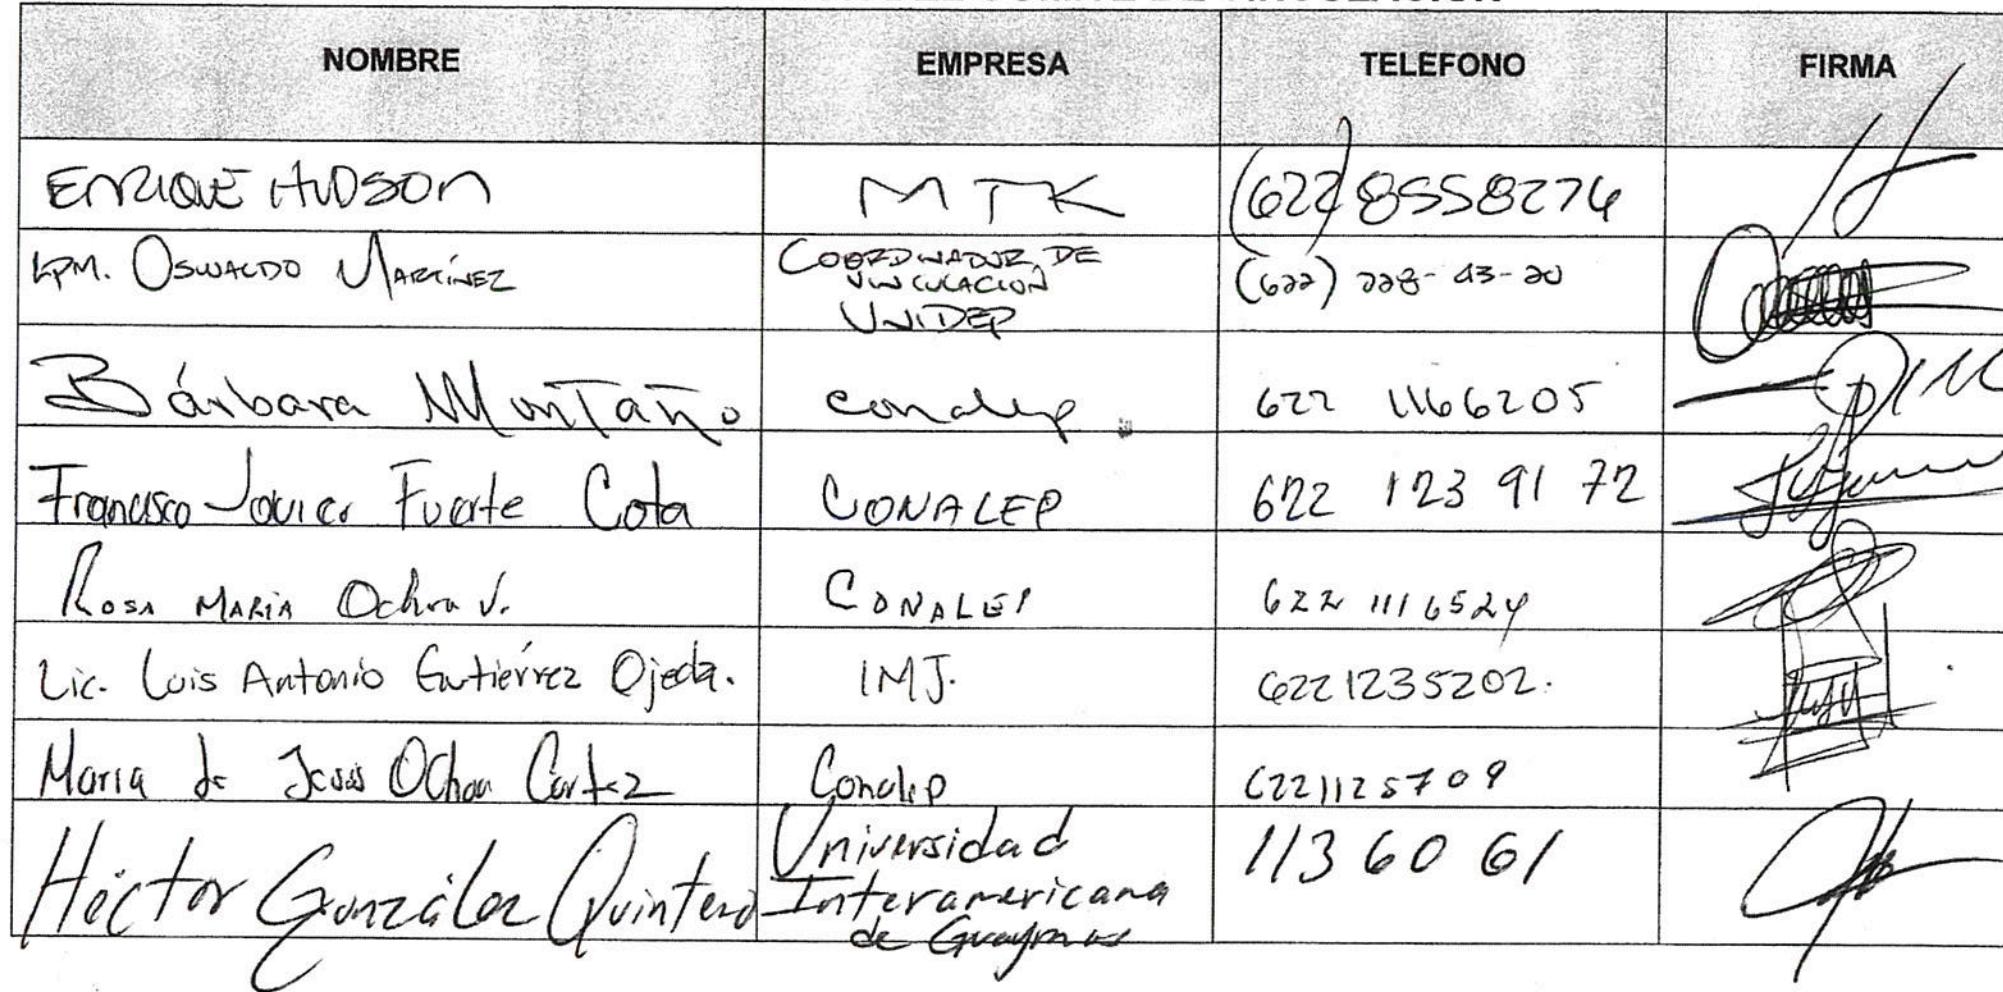 COMITÉ DE VINCULACIÓN
NOMBRE EMPRESA TELEFONO FIRMA
ENRIQUE HUDSON MTK (622) 8558276
LPM. OSWALDO MARTÍNEZ COORDINADOR DE VINCULACION UNIDEP (622) 228-43-20
Bárbara Montaño conalep. 622 1166205
Francisco Javier Fuerte Cota CONALEP 622 123 91 72
ROSA MARIA Ochoa V. CONALEP 622 1116524
Lic. Luis Antonio Gutiérrez Ojeda. IMJ. 6221235202.
Maria de Jesus Ochoa Cortez Conalep 6221125709
Héctor González Quintero Universidad Interamericana de Guaymas 113 60 61